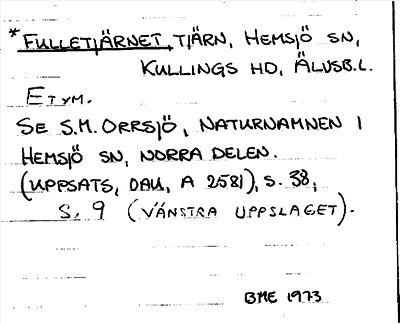 *FULLETJÄRNET, TJÄRN, HEMSJÖ SN,
KULLINGS HD, ÄLVSB.L.
ETYM.
SE S.M. ORRSJÖ, NATURNAMNEN I
HEMSJÖ SN, NORRA DELEN.
(UPPSATS, DAU, A 2581), S. 38,
S. 9 (VÄNSTRA UPPSLAGET).
BME 1973